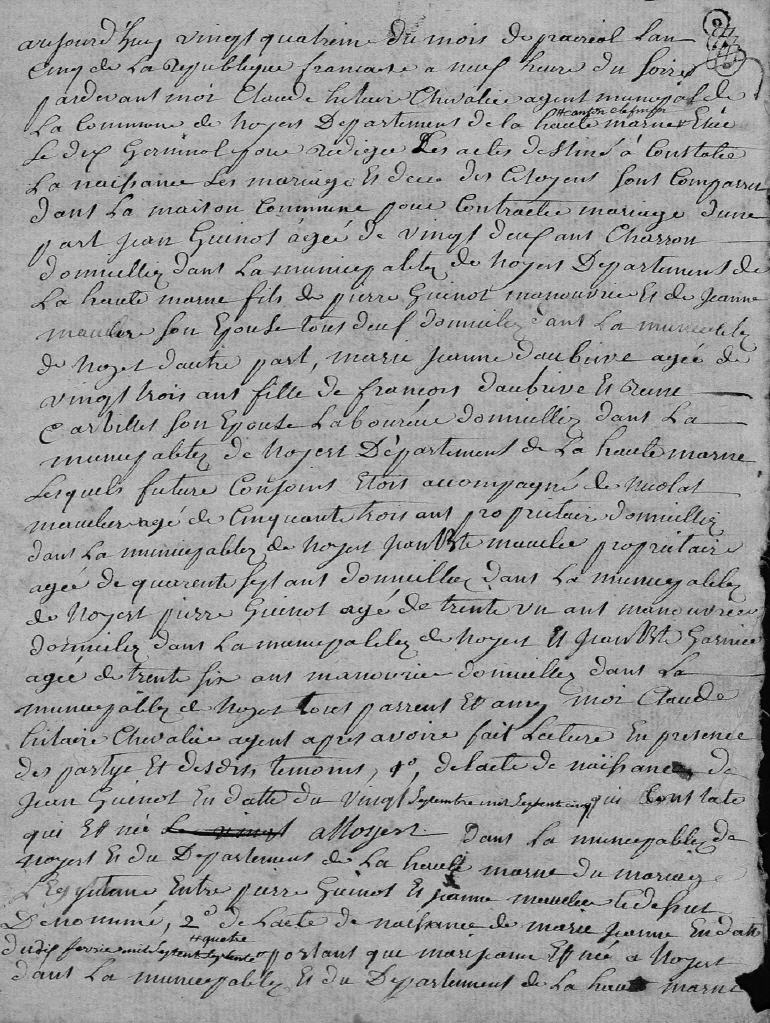 aujourd'huy vingt quatrieme du mois de prairial lan
Cinq de La Republique francaise a neuf heure du Soire
pardevant moi Claude hilaire Chevalie agent municipal de
La Commune de Noyers Departement de la haute marne Elue
Le dix Germinal pour Redigee Les actes destiné à Constatée
La naissance Les mariage Et deces des Citoyens Sont Comparru
dans La maison Commune pour Contractée mariage dune
part Jean Guinot âgée de vingt deux ans Charron
domicilliez dans La municipalitez de Noyers Departement de
La haute marne fils de pierre Guinot manouvrie Et de Jeanne
mauclere Son Epouse tous deux domicilez dans La municipalitez
de Noyers d'autre part, marie Jeanne daubrive agée de
vingt trois ans fille de francois daubrive Et Reine
Carbillet Son Epouse Laboureur domicilliez dans La
municipalitez de Noyers Département de La haute marne
Lesquels future Conjoint Etois accompagné de Nicolas
mauclere agé de Cinquante trois ans propriétair domicilliez
dans La municipalitez de Noyers Jean Bte mauclere propriétaire
agée de quarente Sept ans domicilliez dans La municipalitez
de Noyers pierre Guinot agé de trente un ans manouvrier
domicilez dans La municipalitez de Noyers Et Jean Bte Garnier
agée de trente Six ans manouvrie domicillez dans La
municipalitez de Noyers tous parrent Et amy moi Claude
hilaire Chevalie agent apres avoire fait Lecture En presence
des partye Et desdits temoins, 1°, de lacte de naissance de
Jean Guinot En datte du vingt Septembre mil Septent cinq qui Constate
qui Est née a Noyers dans La municipalitez de
Noyers Et du Departement de La haute marne du mariage
Legitime Entre pierre Guinot Et Jeanne mauclere
Denommé, 2° de Lacte de naissance de marie Jeanne En datte
du dix fevrie mil Septent quatre portant que marie Jeanne Est née a Noyers
dans La municipalitez Et du Departement de La haute marne